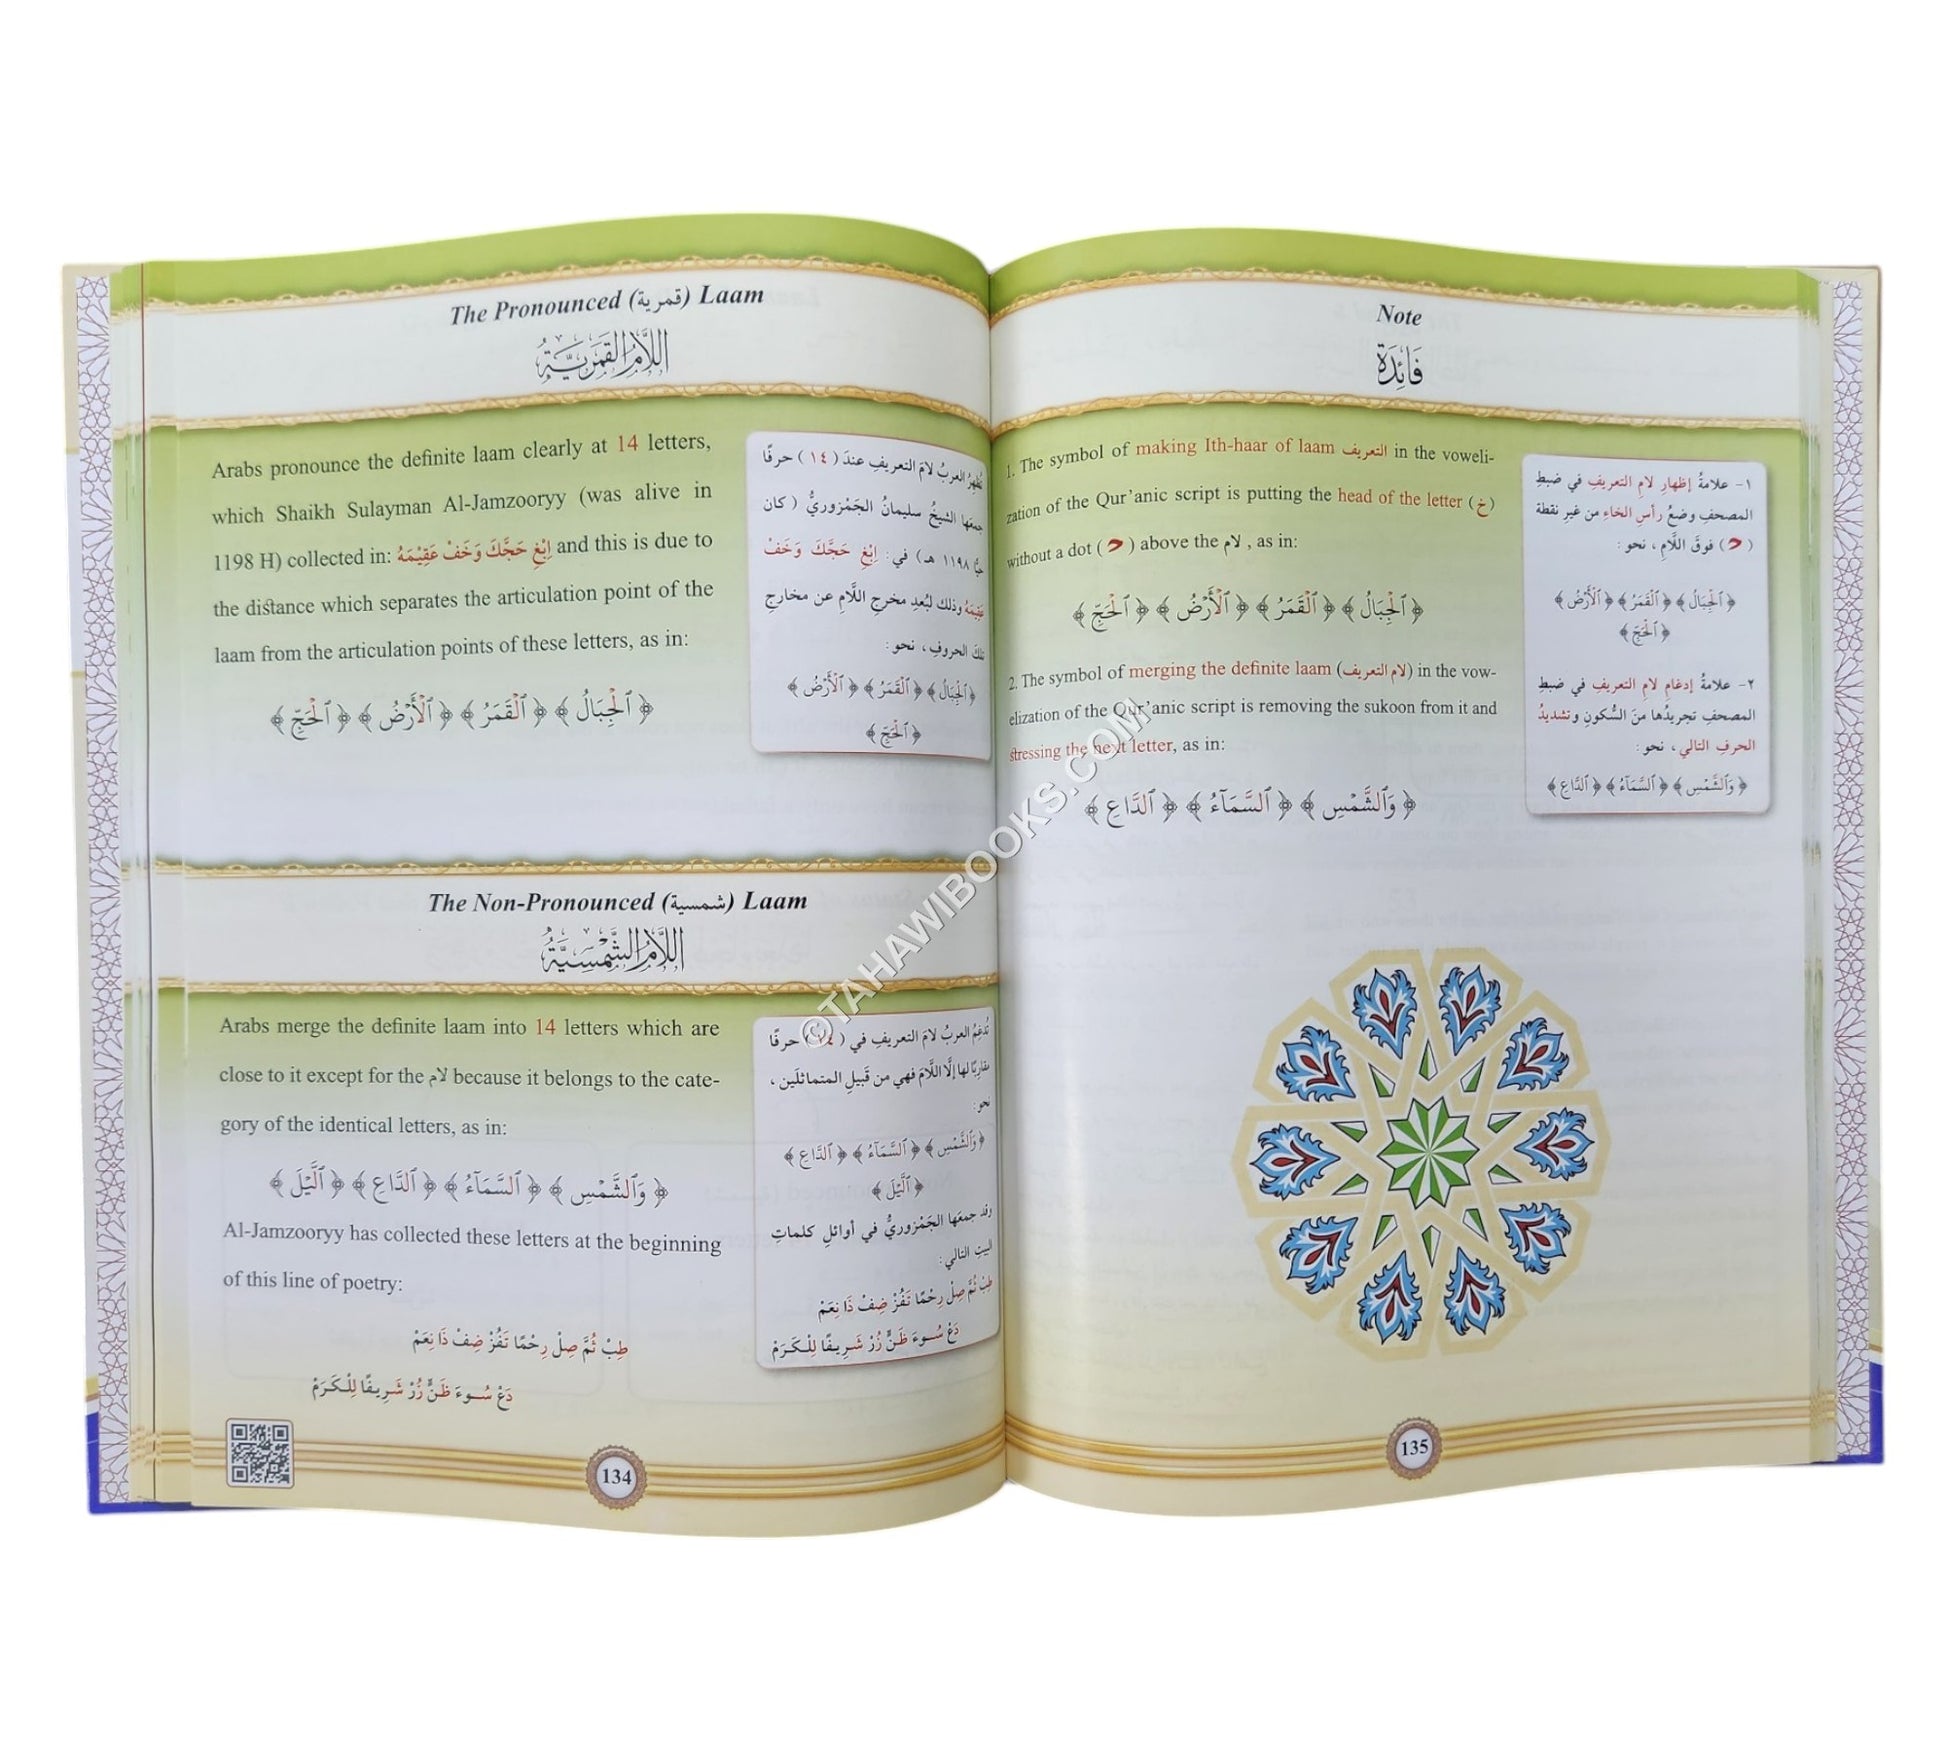 The Pronounced (قمرية) Laam
اللَّامُ القَمَرِيَّةُ
Arabs pronounce the definite laam clearly at 14 letters,
which Shaikh Sulayman Al-Jamzooryy (was alive in
1198 H) collected in: اِبْغِ حَجَّكَ وَخَفْ عَقِيْمَهُ and this is due to
the distance which separates the articulation point of the
laam from the articulation points of these letters, as in:
﴿ ٱلْجِبَالُ ﴾ ﴿ ٱلْقَمَرُ ﴾ ﴿ ٱلْأَرْضُ ﴾ ﴿ ٱلْحَجِّ ﴾
تُظهِرُ العربُ لامَ التعريفِ عندَ ( ١٤ ) حرفًا
جمعَها الشيخُ سليمانُ الجَمْزوريُّ ( كان
حيًّا ١١٩٨ هـ ) في : اِبْغِ حَجَّكَ وَخَفْ
عَقِيْمَهُ وذلك لبُعدِ مخرجِ اللَّامِ عن مخارجِ
تلكَ الحروفِ ، نحو :
﴿ ٱلْجِبَالُ ﴾ ﴿ ٱلْقَمَرُ ﴾ ﴿ ٱلْأَرْضُ ﴾
﴿ ٱلْحَجِّ ﴾
The Non-Pronounced (شمسية) Laam
اللَّامُ الشَّمْسِيَّةُ
Arabs merge the definite laam into 14 letters which are
close to it except for the لام because it belongs to the cate-
gory of the identical letters, as in:
﴿ وَٱلشَّمْسِ ﴾ ﴿ ٱلسَّمَآءُ ﴾ ﴿ ٱلدَّاعِ ﴾ ﴿ ٱلَّيْلَ ﴾
Al-Jamzooryy has collected these letters at the beginning
of this line of poetry:
طِبْ ثُمَّ صِلْ رِحْمًا تَفُزْ ضِفْ ذَا نِعَمْ
دَعْ سُـوءَ ظَـنٍّ زُرْ شَـرِيفًا لِلْـكَـرَمْ
تُدغِمُ العربُ لامَ التعريفِ في ( ١٤ ) حرفًا
مقاربًا لها إلَّا اللَّامَ فهي من قَبيلِ المتماثلَين ،
نحو :
﴿ وَٱلشَّمْسِ ﴾ ﴿ ٱلسَّمَآءُ ﴾ ﴿ ٱلدَّاعِ ﴾
﴿ ٱلَّيْلَ ﴾
وقد جمعَها الجَمْزوريُّ في أوائلِ كلماتِ
البيتِ التالي :
طِبْ ثُمَّ صِلْ رِحْمًا تَفُزْ ضِفْ ذَا نِعَمْ
دَعْ سُـوءَ ظَـنٍّ زُرْ شَـرِيفًا لِلْـكَـرَمْ
134
Note
فَائِدَة
1. The symbol of making Ith-haar of laam التعريف in the voweli-
zation of the Qur’anic script is putting the head of the letter (خ)
without a dot ( ) above the لام , as in:
﴿ ٱلْجِبَالُ ﴾ ﴿ ٱلْقَمَرُ ﴾ ﴿ ٱلْأَرْضُ ﴾ ﴿ ٱلْحَجِّ ﴾
2. The symbol of merging the definite laam (لام التعريف) in the vow-
elization of the Qur’anic script is removing the sukoon from it and
stressing the next letter, as in:
﴿ وَٱلشَّمْسِ ﴾ ﴿ ٱلسَّمَآءُ ﴾ ﴿ ٱلدَّاعِ ﴾
١- علامةُ إظهارِ لامِ التعريفِ في ضبطِ
المصحفِ وضعُ رأسِ الخاءِ من غيرِ نقطة
( ) فوقَ اللَّامِ ، نحو :
﴿ ٱلْجِبَالُ ﴾ ﴿ ٱلْقَمَرُ ﴾ ﴿ ٱلْأَرْضُ ﴾
﴿ ٱلْحَجِّ ﴾
٢- علامةُ إدغامِ لامِ التعريفِ في ضبطِ
المصحفِ تجريدُها منَ السُّكونِ وتشديدُ
الحرفِ التالي ، نحو :
﴿ وَٱلشَّمْسِ ﴾ ﴿ ٱلسَّمَآءُ ﴾ ﴿ ٱلدَّاعِ ﴾
135
©TAHAWIBOOKS.COM